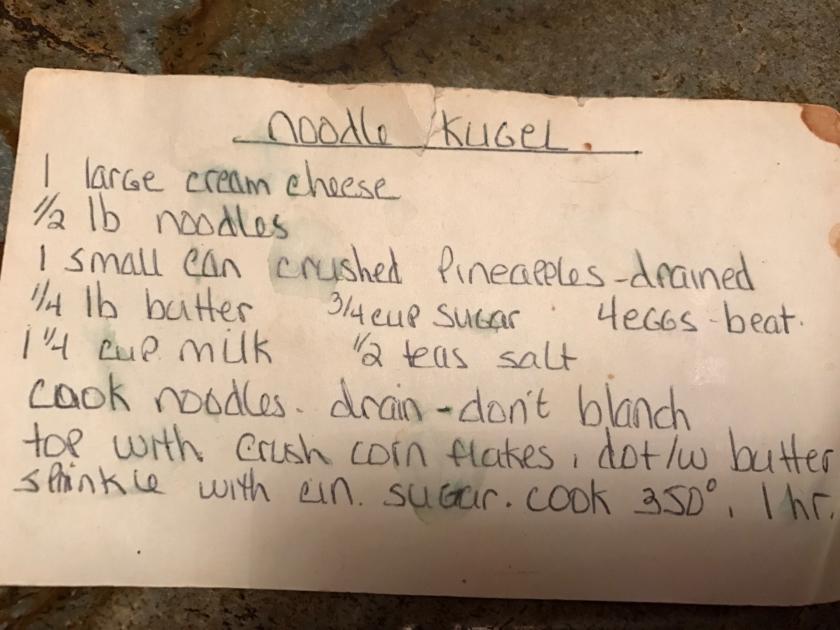 Noodle Kugel.
1 large cream cheese
1/2 lb noodles
1 small can crushed Pineapples-drained
1/4 lb butter 3/4 cup sugar 4 eggs-beat.
1 1/4 cup milk 1/2 teas salt
Cook noodles. drain-don't blanch
top with crush corn flakes, dot/w butter
sprinkle with cin. sugar. cook 350°. 1 hr.